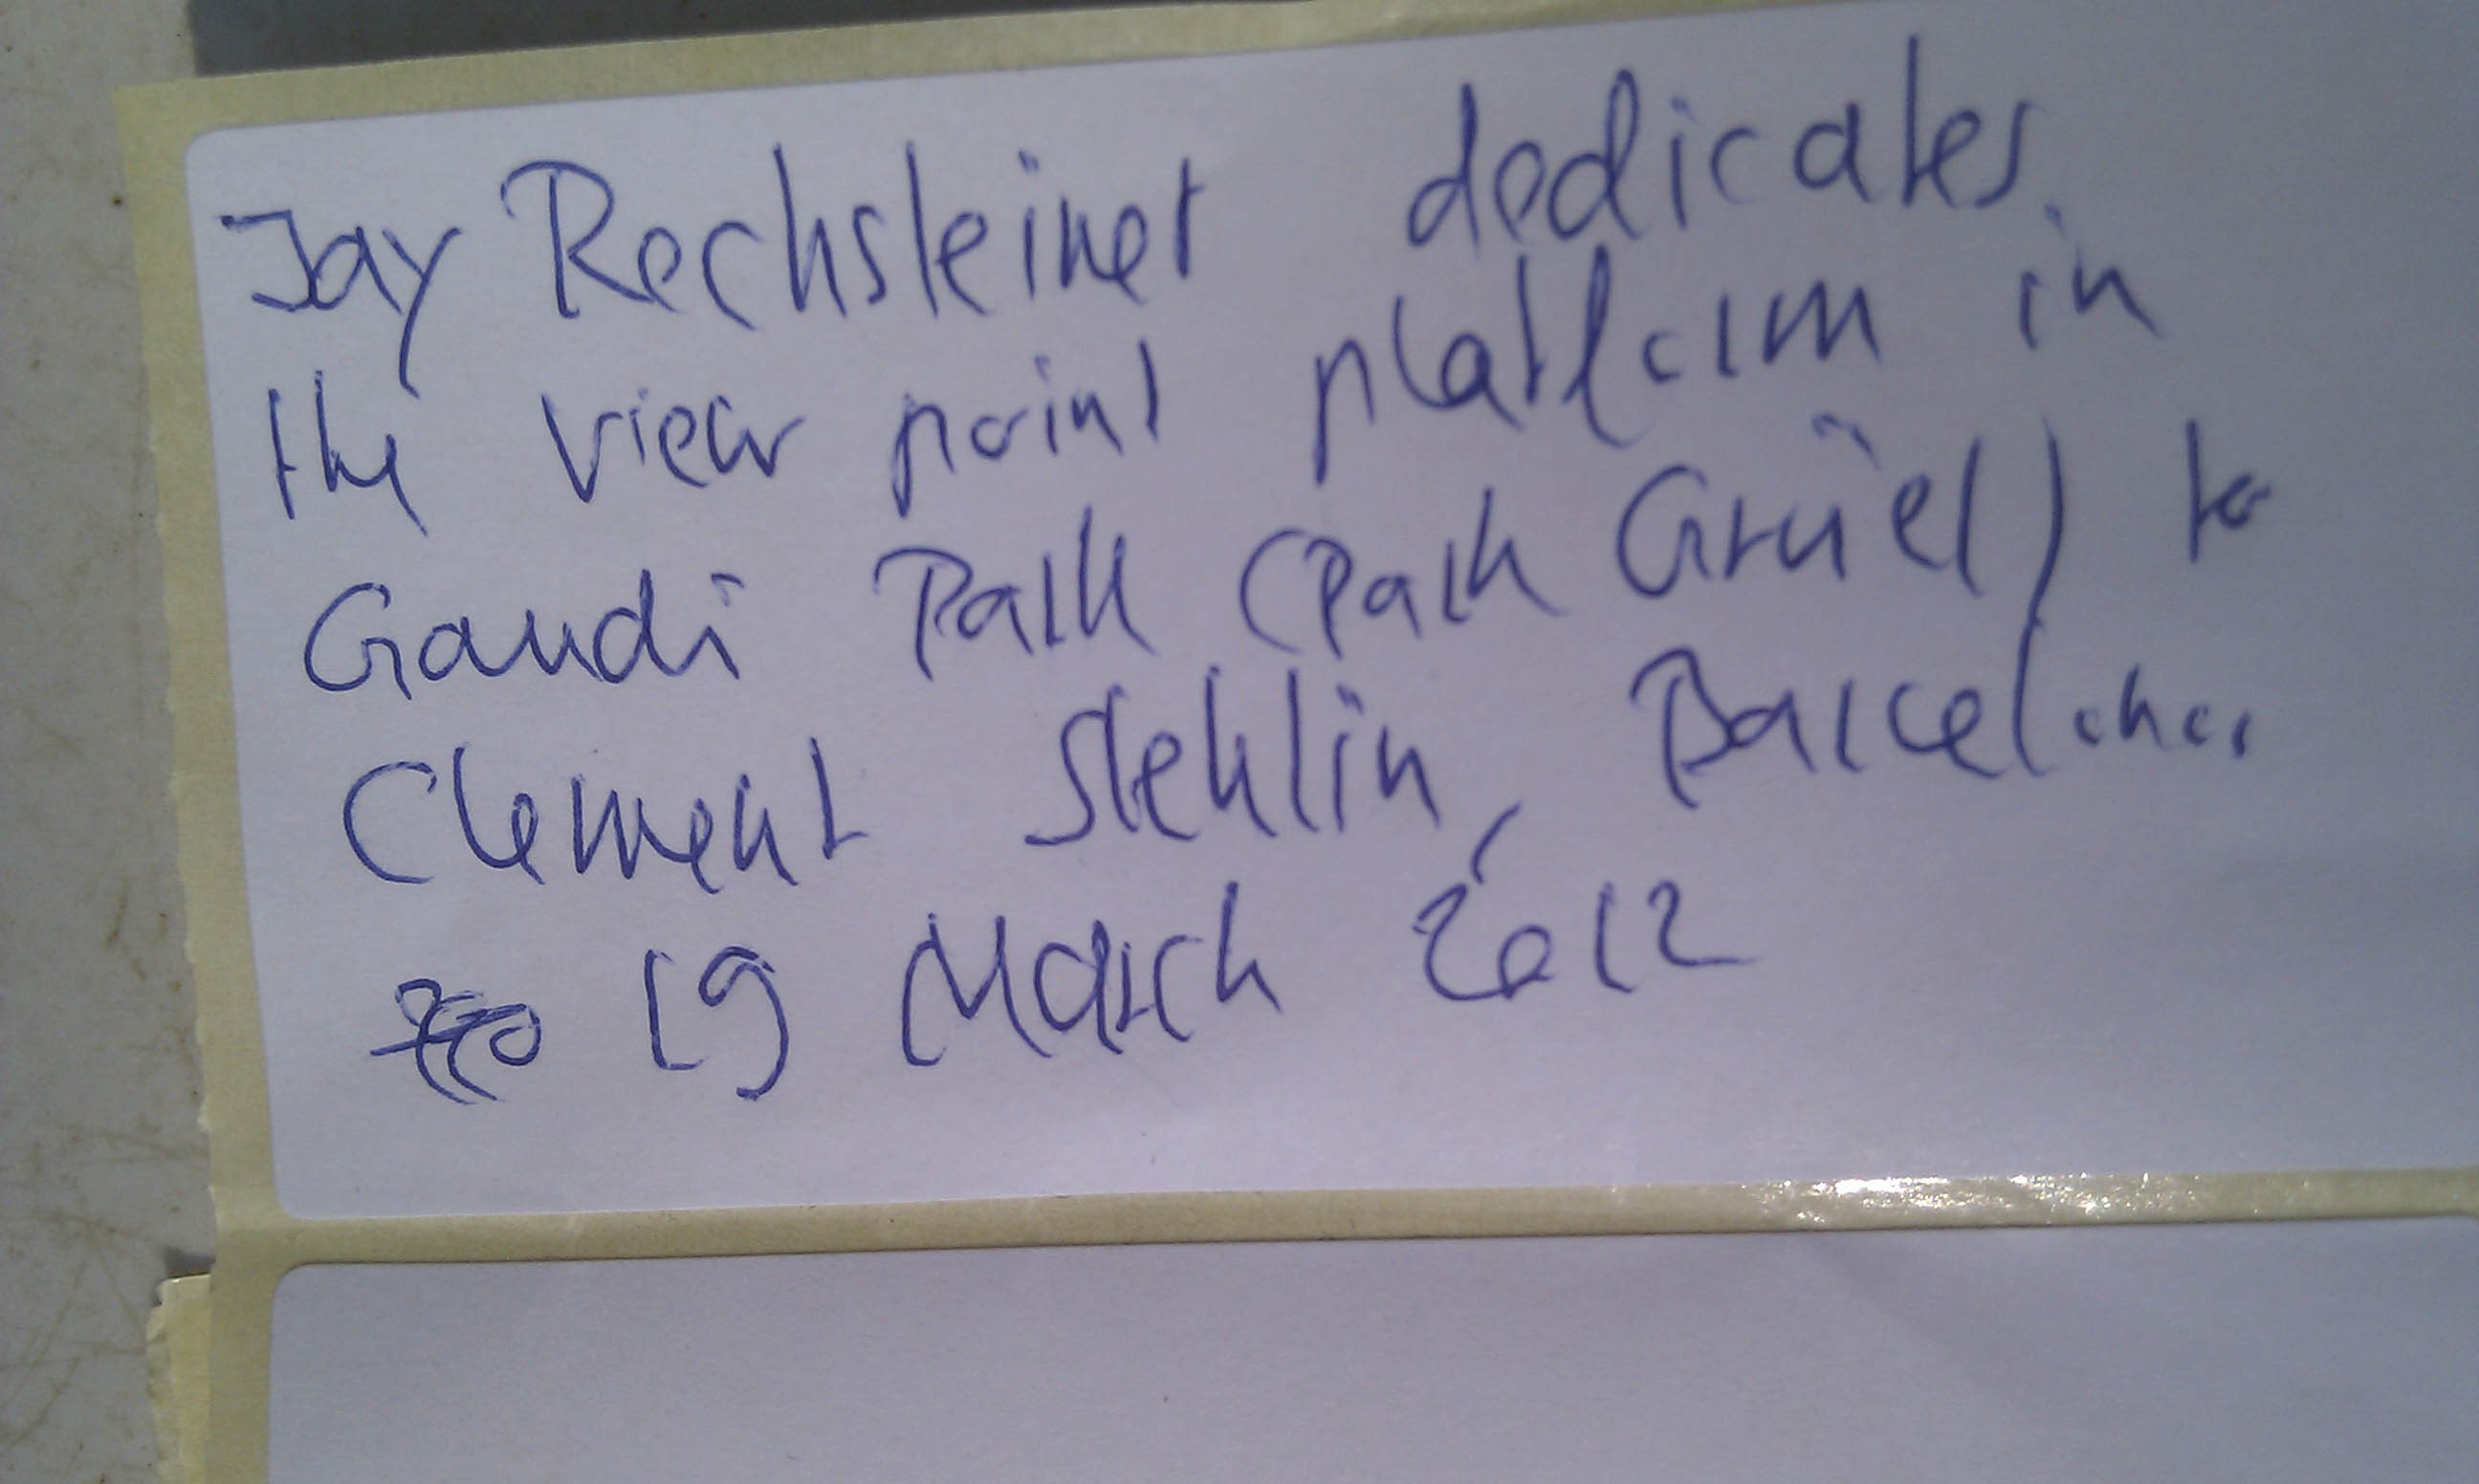 Jay Rechsteiner dedicates
the view point platform in
Gaudi Park (Park Grüel) to
Clement Stehlin, Barcelona
19 March 2012